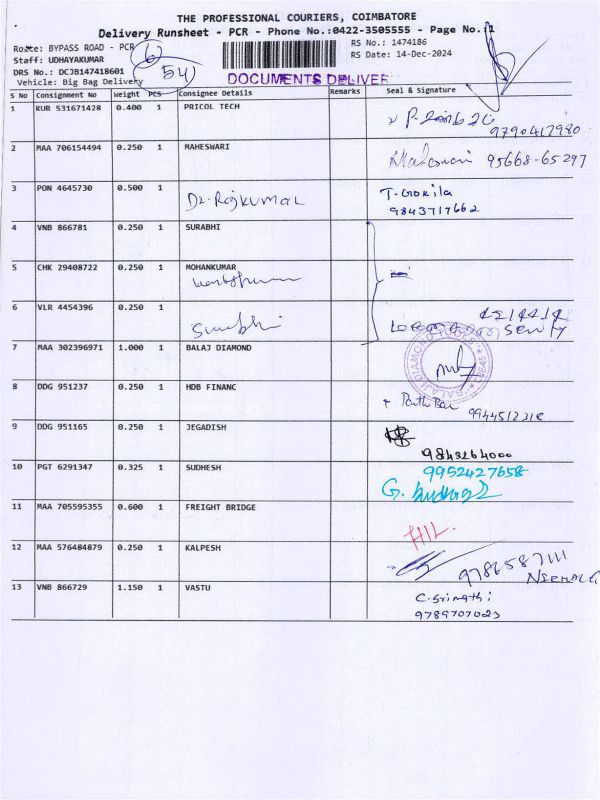 THE PROFESSIONAL COURIERS, COIMBATORE
Delivery Runsheet - PCR - Phone No.:0422-3505555 - Page No.:1
Route: BYPASS ROAD - PCR
RS No.: 1474186
Staff: UDHAYAKUMAR
RS Date: 14-Dec-2024
DRS No.: DCJB147418601
54
Vehicle: Big Bag Delivery
DOCUMENTS DELIVER
S No Consignment No Weight PCS Consignee Details Remarks Seal & Signature
1 KUR 531671428 0.400 1 PRICOL TECH
9790417980
2 MAA 706154494 0.250 1 MAHESWARI
95668-65297
3 PON 4645730 0.500 1 T-Gokila
Dr. Rajkumar 9843717662
4 VNB 866781 0.250 1 SURABHI
5 CHK 29408722 0.250 1 MOHANKUMAR
6 VLR 4454396 0.250 1
Surabhi
7 MAA 302396971 1.000 1 BALAJ DIAMOND
8 DDG 951237 0.250 1 HDB FINANC
9944512318
9 DDG 951165 0.250 1 JEGADISH
9843264000
10 PGT 6291347 0.325 1 SUDHESH 9952427658
11 MAA 705595355 0.600 1 FREIGHT BRIDGE
HIL.
12 MAA 576484879 0.250 1 KALPESH
9786587111
13 VNB 866729 1.150 1 VASTU
C. Srimathi
9789707023